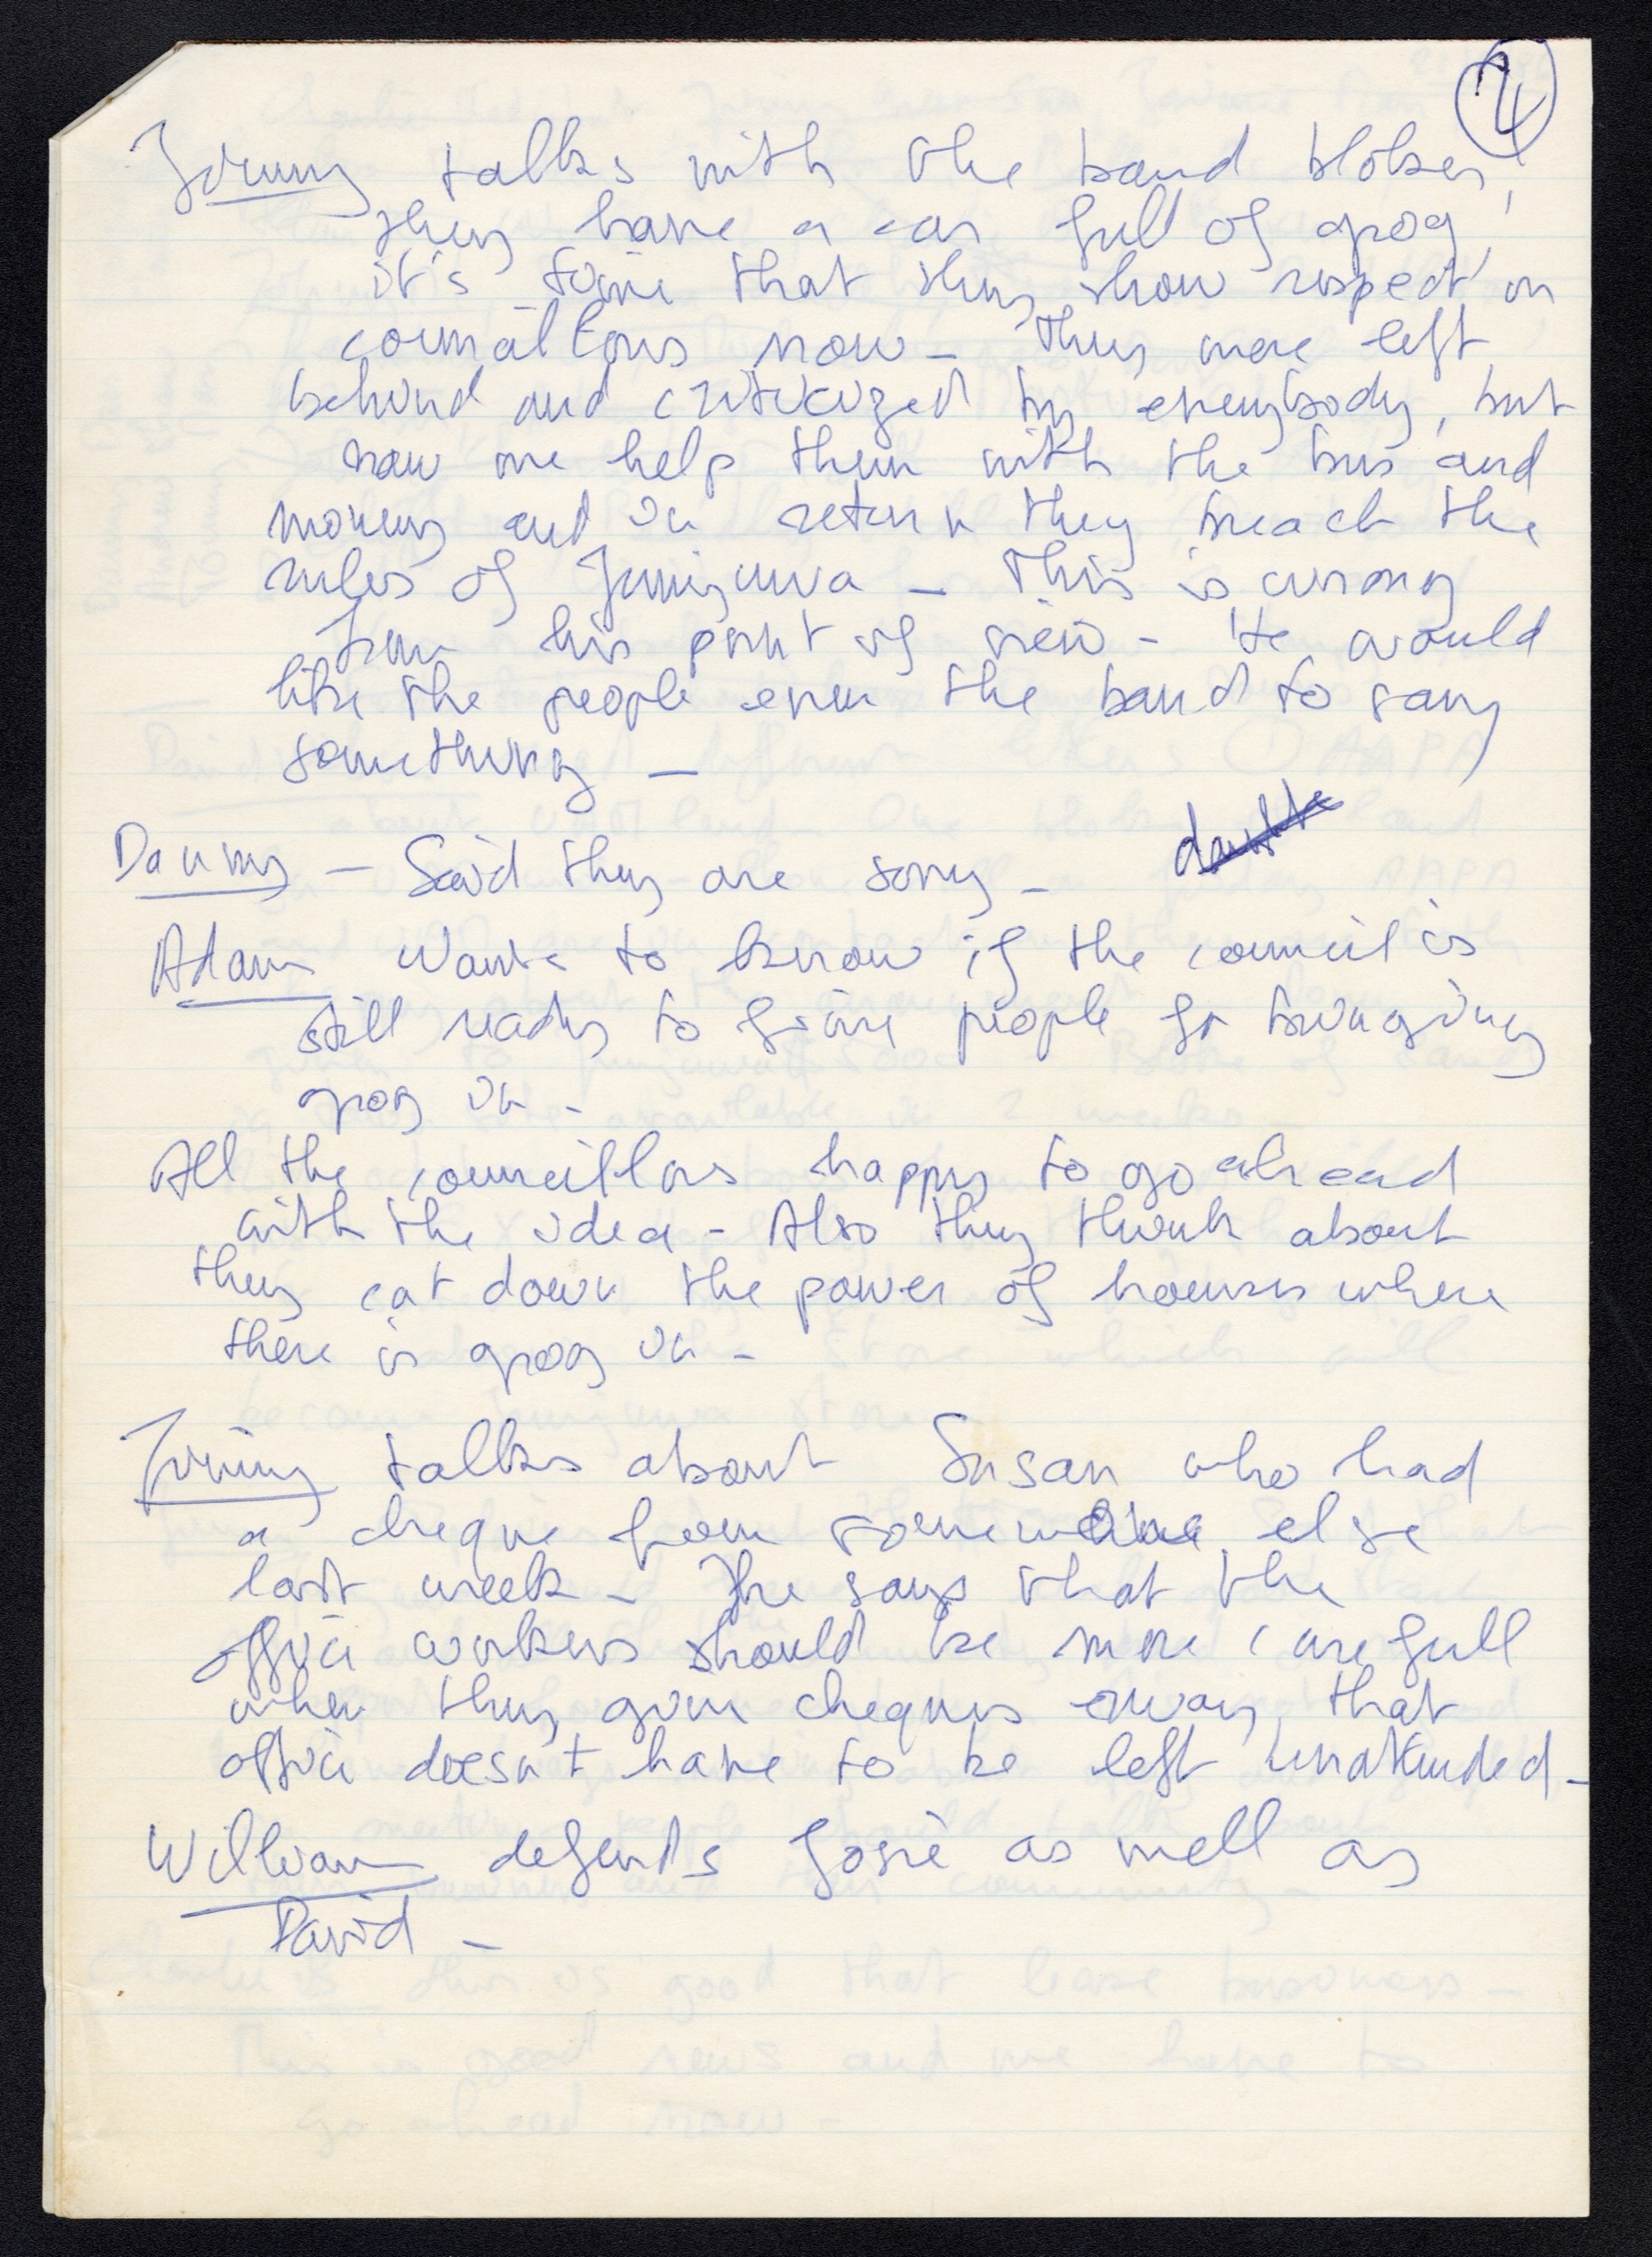 4
Jimmy talks with the band blokes,
they have a car full of grog,
it's time that they show respect on
councillors now - They were left
behind and criticized by everybody, but
now we help them with the bus and
money and in return they breach the
rules of Junjuwa - This is wrong
from his point of view - He would
like the people even the band to say
something -
Danny - Said they are sorry -
Adam Wants to know if the council is
still ready to fine people for bringing
grog in -
All the councillors happy to go ahead
with the idea - Also they think about
they cat down the power of houses where
there is grog in -
Jimmy talks about Susan who had
a cheque from someone else
last week - He says that the
office workers should be more carefull
when they give cheques away, that
office doesn't have to be left unattended -
William defends Josie as well as
David -